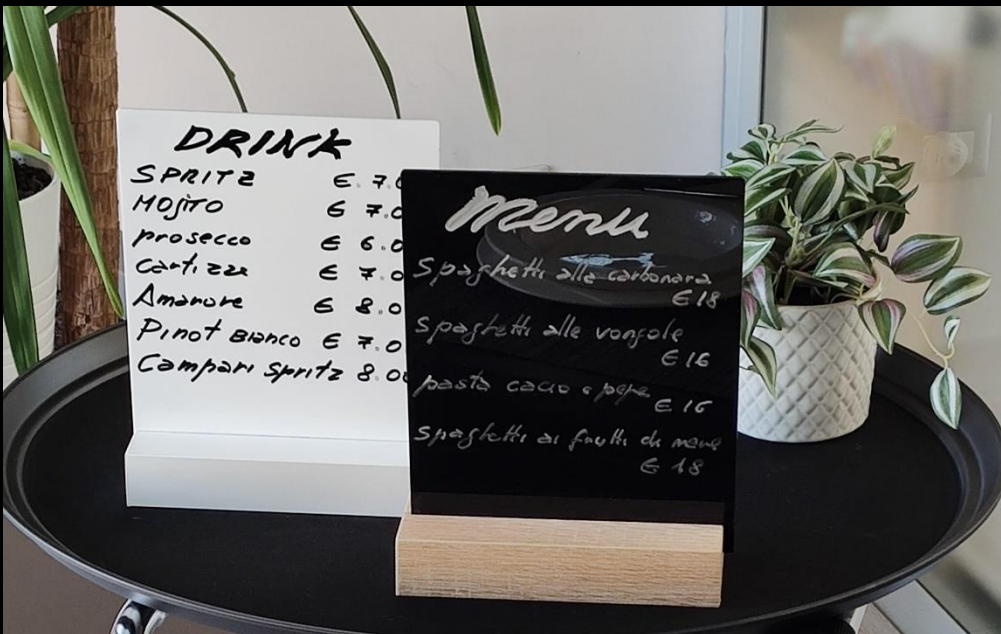 DRINK
SPRITZ € 7.0
MOJITO € 7.0
prosecco € 6.0
Cartizze € 7.0
Amarore € 8.0
Pinot Bianco € 7.0
Campari Spritz 8.00
Menu
Spaghetti alla carbonara
€ 18
Spaghetti alle vongole
€ 16
pasta cacio e pepe
€ 16
Spaghetti ai frutti di mare
€ 18